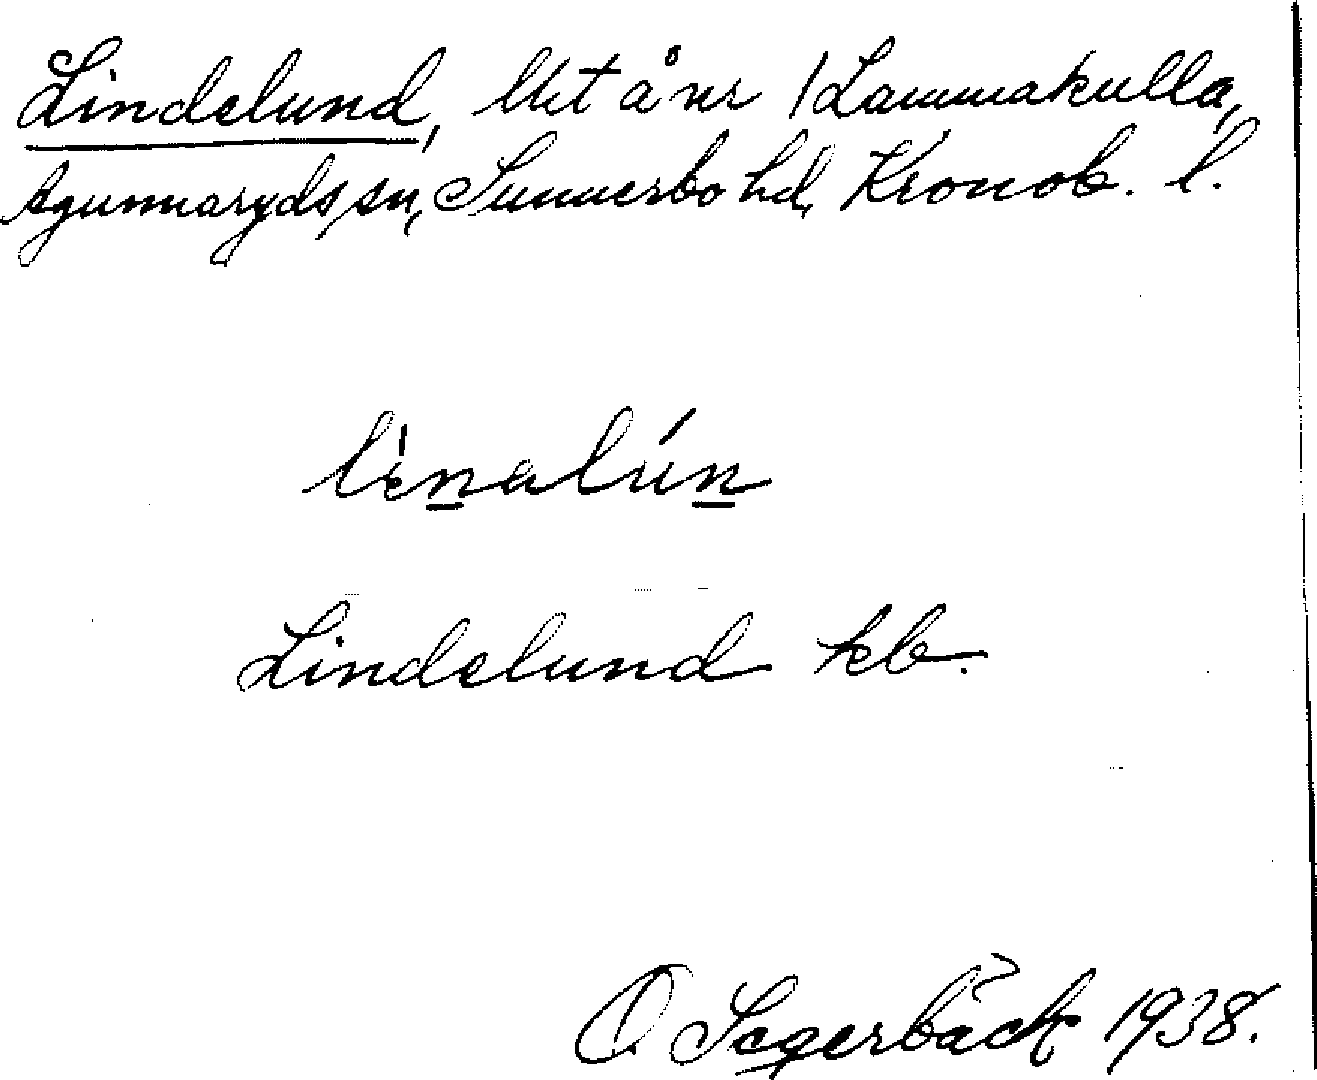 Lindelund, lht å nr 1 Lammakulla,
Agunnaryds sn, Sunnerbo hd, Kronob. l.
lìnalún
Lindelund kb.
O. Segerbäck 1938.